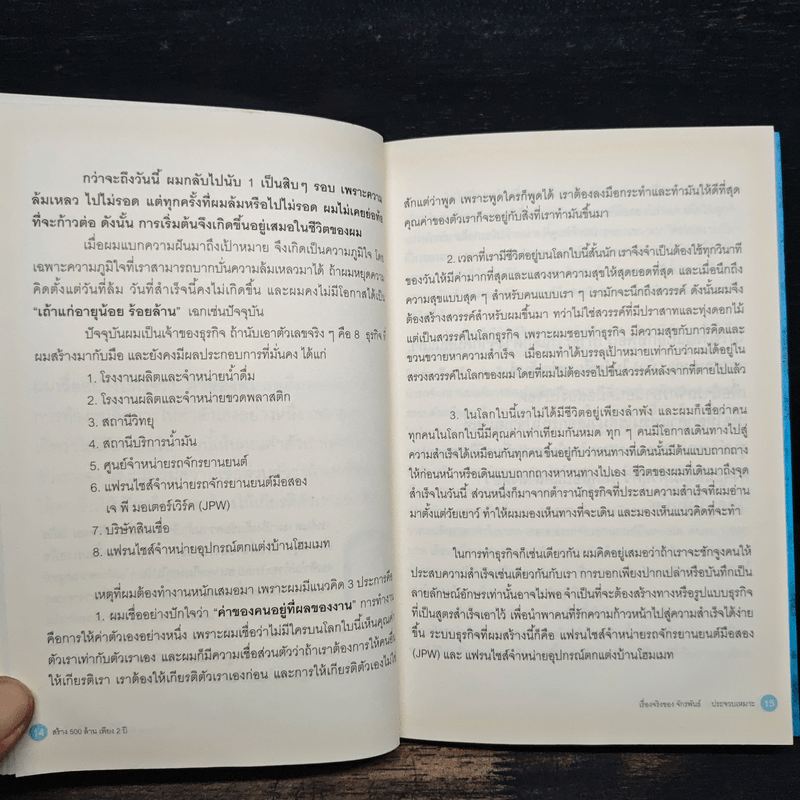 กว่าจะถึงวันนี้ ผมกลับไปนับ 1 เป็นสิบๆ รอบ เพราะความ
ล้มเหลว ไปไม่รอด แต่ทุกครั้งที่ผมล้มหรือไปไม่รอด ผมไม่เคยย่อท้อ
ที่จะก้าวต่อ ดังนั้น การเริ่มต้นจึงเกิดขึ้นอยู่เสมอในชีวิตของผม
เมื่อผมแบกความฝันมาถึงเป้าหมาย จึงเกิดเป็นความภูมิใจ โดย
เฉพาะความภูมิใจที่เราสามารถบากบั่นความล้มเหลวมาได้ ถ้าผมหยุดความ
คิดตั้งแต่วันที่ล้ม วันที่สำเร็จนี้คงไม่เกิดขึ้น และผมคงไม่มีโอกาสได้เป็น
“เถ้าแก่อายุน้อย ร้อยล้าน” เฉกเช่นปัจจุบัน
ปัจจุบันผมเป็นเจ้าของธุรกิจ ถ้านับเอาตัวเลขจริง ๆ คือ 8 ธุรกิจ ที่
ผมสร้างมากับมือ และยังคงมีผลประกอบการที่มั่นคง ได้แก่
1. โรงงานผลิตและจำหน่ายน้ำดื่ม
2. โรงงานผลิตและจำหน่ายขวดพลาสติก
3. สถานีวิทยุ
4. สถานีบริการน้ำมัน
5. ศูนย์จำหน่ายรถจักรยานยนต์
6. แฟรนไชส์จำหน่ายรถจักรยานยนต์มือสอง
เจ พี มอเตอร์เวิร์ค (JPW)
7. บริษัทสินเชื่อ
8. แฟรนไชส์จำหน่ายอุปกรณ์ตกแต่งบ้านโฮมเมท
เหตุที่ผมต้องทำงานหนักเสมอมา เพราะผมมีแนวคิด 3 ประการคือ
1. ผมเชื่ออย่างปักใจว่า “ค่าของคนอยู่ที่ผลของงาน” การทำงาน
คือการให้ค่าตัวเองอย่างหนึ่ง เพราะผมเชื่อว่าไม่มีใครบนโลกใบนี้เห็นคุณค่า
ตัวเราเท่ากับตัวเราเอง และผมก็มีความเชื่อส่วนตัวว่าถ้าเราต้องการให้คนอื่น
ให้เกียรติเรา เราต้องให้เกียรติตัวเราเองก่อน และการให้เกียรติตัวเองไม่ใช่
14 สร้าง 500 ล้าน เพียง 2 ปี
สักแต่ว่าพูด เพราะพูดใครก็พูดได้ เราต้องลงมือกระทำและทำมันให้ดีที่สุด
คุณค่าของตัวเราก็จะอยู่กับสิ่งที่เราทำมันขึ้นมา
2. เวลาที่เรามีชีวิตอยู่บนโลกใบนี้สั้นนัก เราจึงจำเป็นต้องใช้ทุกวินาที
ของวันให้มีค่ามากที่สุดและแสวงหาความสุขให้สุดยอดที่สุด และเมื่อนึกถึง
ความสุขแบบสุด ๆ สำหรับคนแบบเรา ๆ เรามักจะนึกถึงสวรรค์ ดังนั้นผมจึง
ต้องสร้างสวรรค์สำหรับผมขึ้นมา ทว่าไม่ใช่สวรรค์ที่มีปราสาทและทุ่งดอกไม้
แต่เป็นสวรรค์ในโลกธุรกิจ เพราะผมชอบทำธุรกิจ มีความสุขกับการคิดและ
ขวนขวายหาความสำเร็จ เมื่อผมทำได้บรรลุเป้าหมายเท่ากับว่าผมได้อยู่ใน
สรวงสวรรค์ในโลกของผม โดยที่ผมไม่ต้องรอไปขึ้นสวรรค์หลังจากที่ตายไปแล้ว
3. ในโลกใบนี้เราไม่ได้มีชีวิตอยู่เพียงลำพัง และผมก็เชื่อว่าคน
ทุกคนในโลกใบนี้มีคุณค่าเท่าเทียมกันหมด ทุก ๆ คนมีโอกาสเดินทางไปสู่
ความสำเร็จได้เหมือนกันทุกคน ขึ้นอยู่กับว่าหนทางที่เดินนั้นมีต้นแบบถากถาง
ให้ก่อนหน้าหรือเดินแบบถากถางหาหนทางไปเอง ชีวิตของผมที่เดินมาถึงจุด
สำเร็จในวันนี้ ส่วนหนึ่งก็มาจากตำรานักธุรกิจที่ประสบความสำเร็จที่ผมอ่าน
มาตั้งแต่วัยเยาว์ ทำให้ผมมองเห็นทางที่จะเดิน และมองเห็นแนวคิดที่จะทำ
ในการทำธุรกิจก็เช่นเดียวกัน ผมคิดอยู่เสมอว่าถ้าเราจะชักจูงคนให้
ประสบความสำเร็จเช่นเดียวกันกับเรา การบอกเพียงปากเปล่าหรือบันทึกเป็น
ลายลักษณ์อักษรเท่านั้นอาจไม่พอ จำเป็นที่จะต้องสร้างทางหรือรูปแบบธุรกิจ
ที่เป็นสูตรสำเร็จเอาไว้ เพื่อนำพาคนที่รักความก้าวหน้าไปสู่ความสำเร็จได้ง่าย
ขึ้น ระบบธุรกิจที่ผมสร้างนี้ก็คือ แฟรนไชส์จำหน่ายรถจักรยานยนต์มือสอง
(JPW) และ แฟรนไชส์จำหน่ายอุปกรณ์ตกแต่งบ้านโฮมเมท
เรื่องจริงของ จักรพันธ์ ประจวบเหมาะ 15